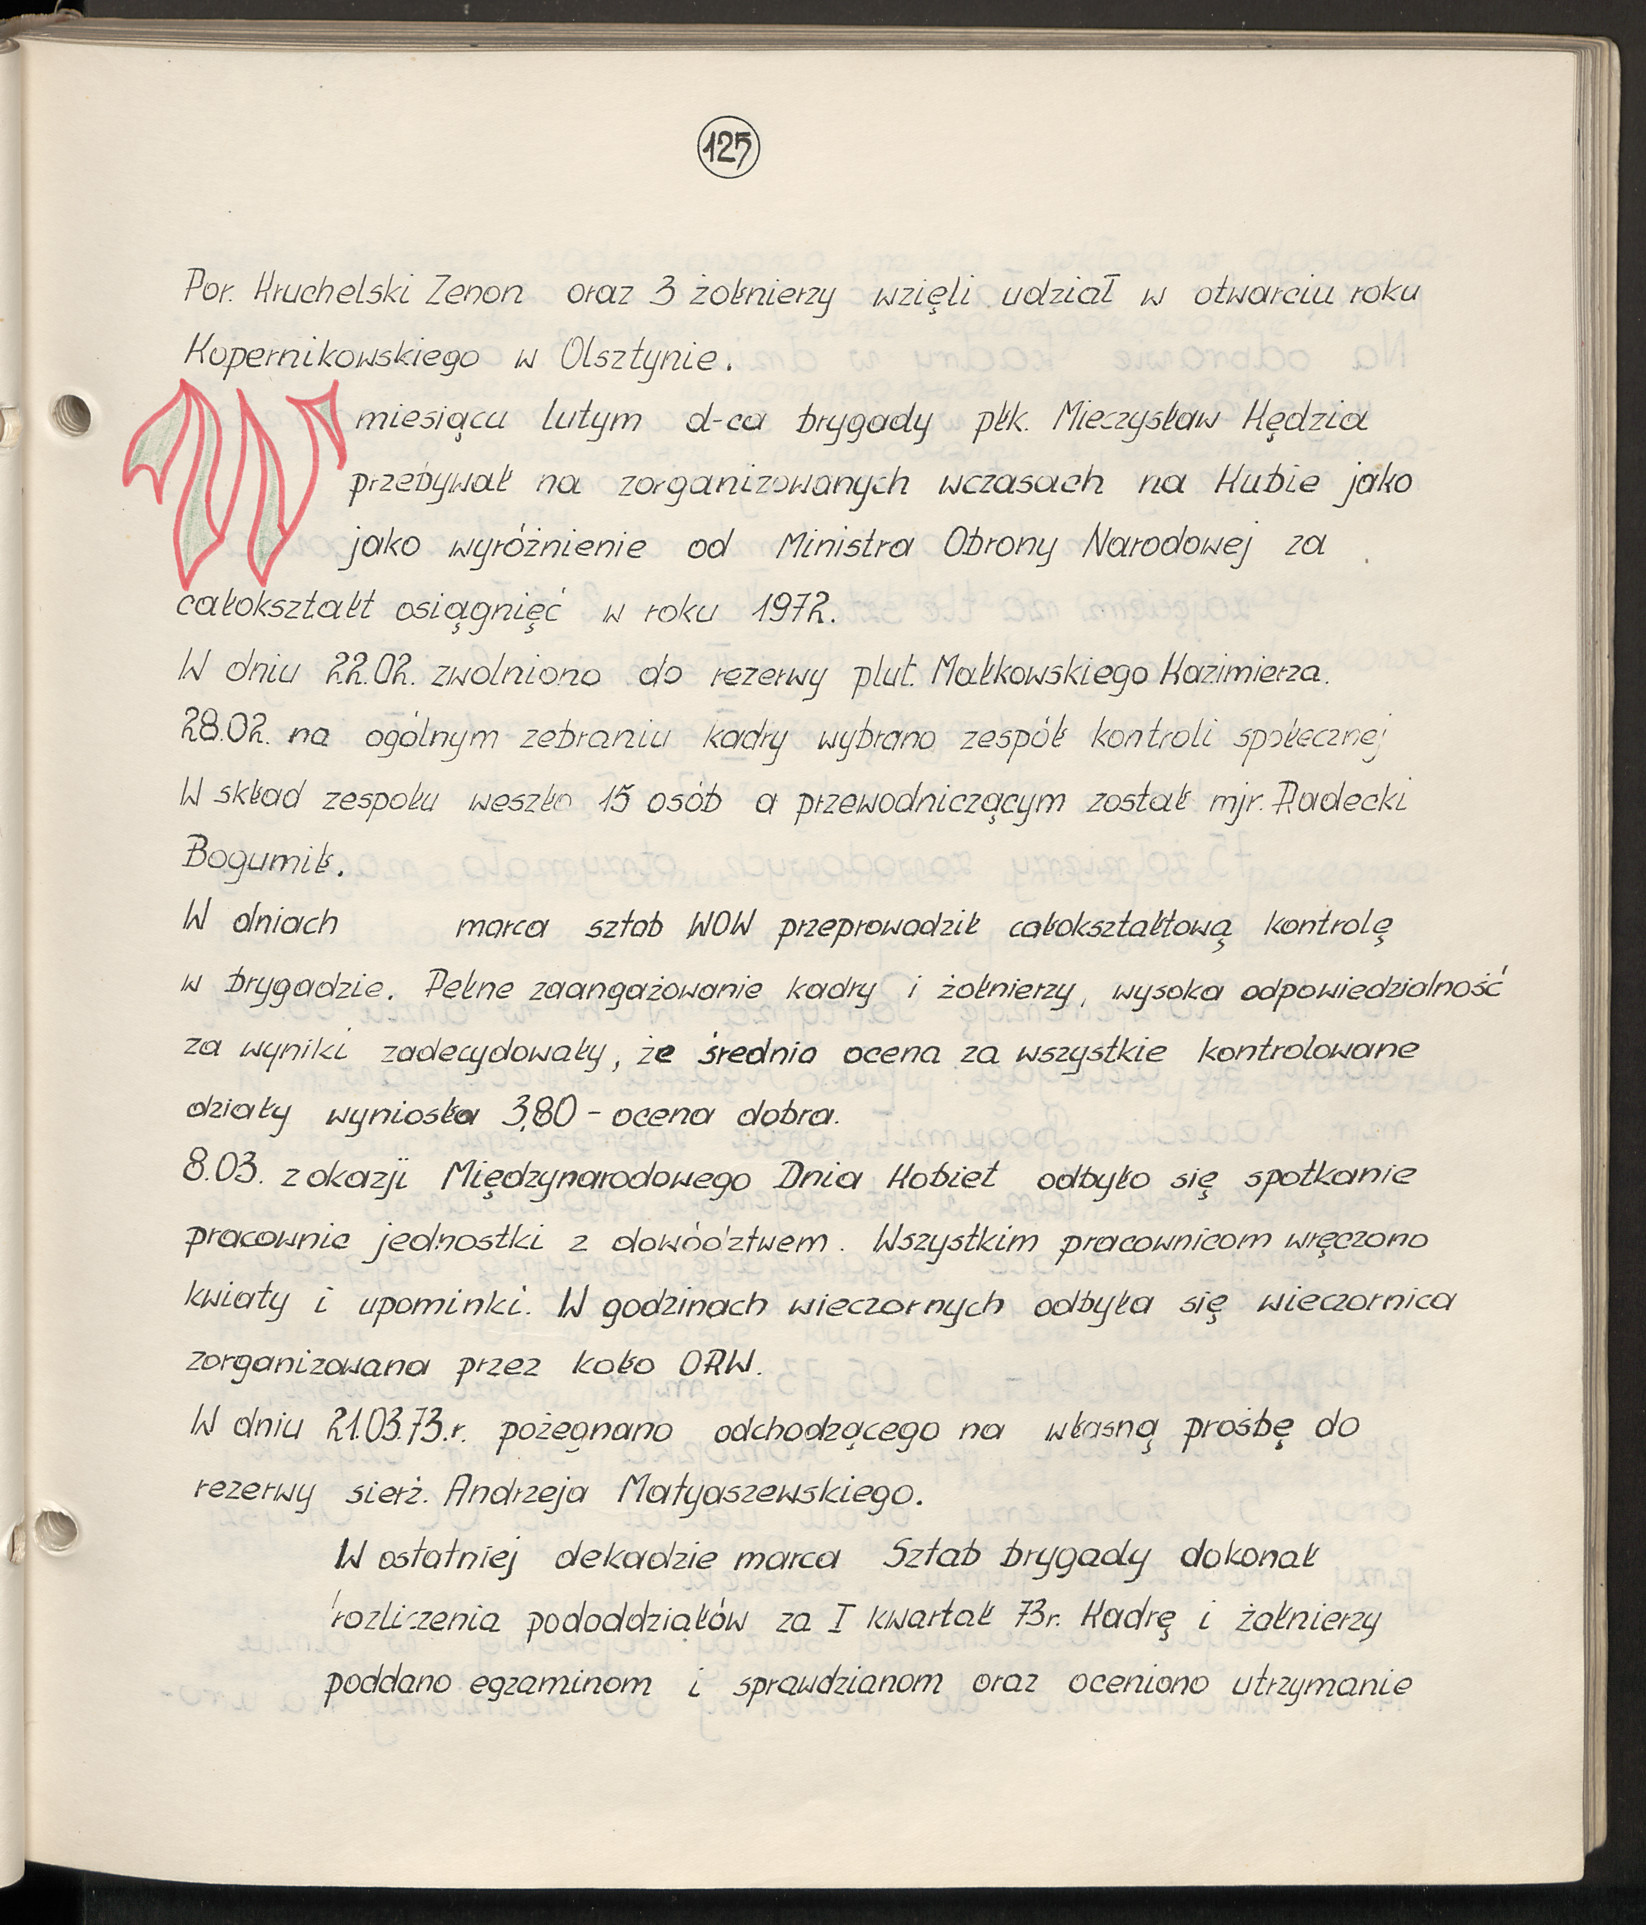 125
Por. Kruchelski Zenon oraz 3 żołnierzy wzięli udział w otwarciu roku
Kopernikowskiego w Olsztynie.
W miesiącu lutym d-ca brygady płk. Mieczysław Kędzia
przebywał na zorganizowanych wczasach na Kubie jako
jako wyróżnienie od Ministra Obrony Narodowej za
całokształt osiągnięć w roku 1972.
W dniu 22.02. zwolniono do rezerwy plut. Małkowskiego Kazimierza.
28.02. na ogólnym zebraniu kadry wybrano zespół kontroli społecznej
W skład zespołu weszło 15 osób a przewodniczącym został mjr. Radecki
Bogumił.
W dniach marca sztab WOW przeprowadził całokształtową kontrolę
w brygadzie. Pełne zaangażowanie kadry i żołnierzy, wysoka odpowiedzialność
za wyniki zadecydowały, że średnia ocena za wszystkie kontrolowane
działy wyniosła 3,80 - ocena dobra.
8.03. z okazji Międzynarodowego Dnia Kobiet odbyło się spotkanie
pracownic jednostki z dowództwem. Wszystkim pracownicom wręczono
kwiaty i upominki. W godzinach wieczornych odbyła się wieczornica
zorganizowana przez koło ORW.
W dniu 21.03.73.r. pożegnano odchodzącego na własną prośbę do
rezerwy sierż. Andrzeja Matyaszewskiego.
W ostatniej dekadzie marca Sztab brygady dokonał
rozliczenia pododdziałów za I kwartał 73r. Kadrę i żołnierzy
poddano egzaminom i sprawdzianom oraz oceniono utrzymanie